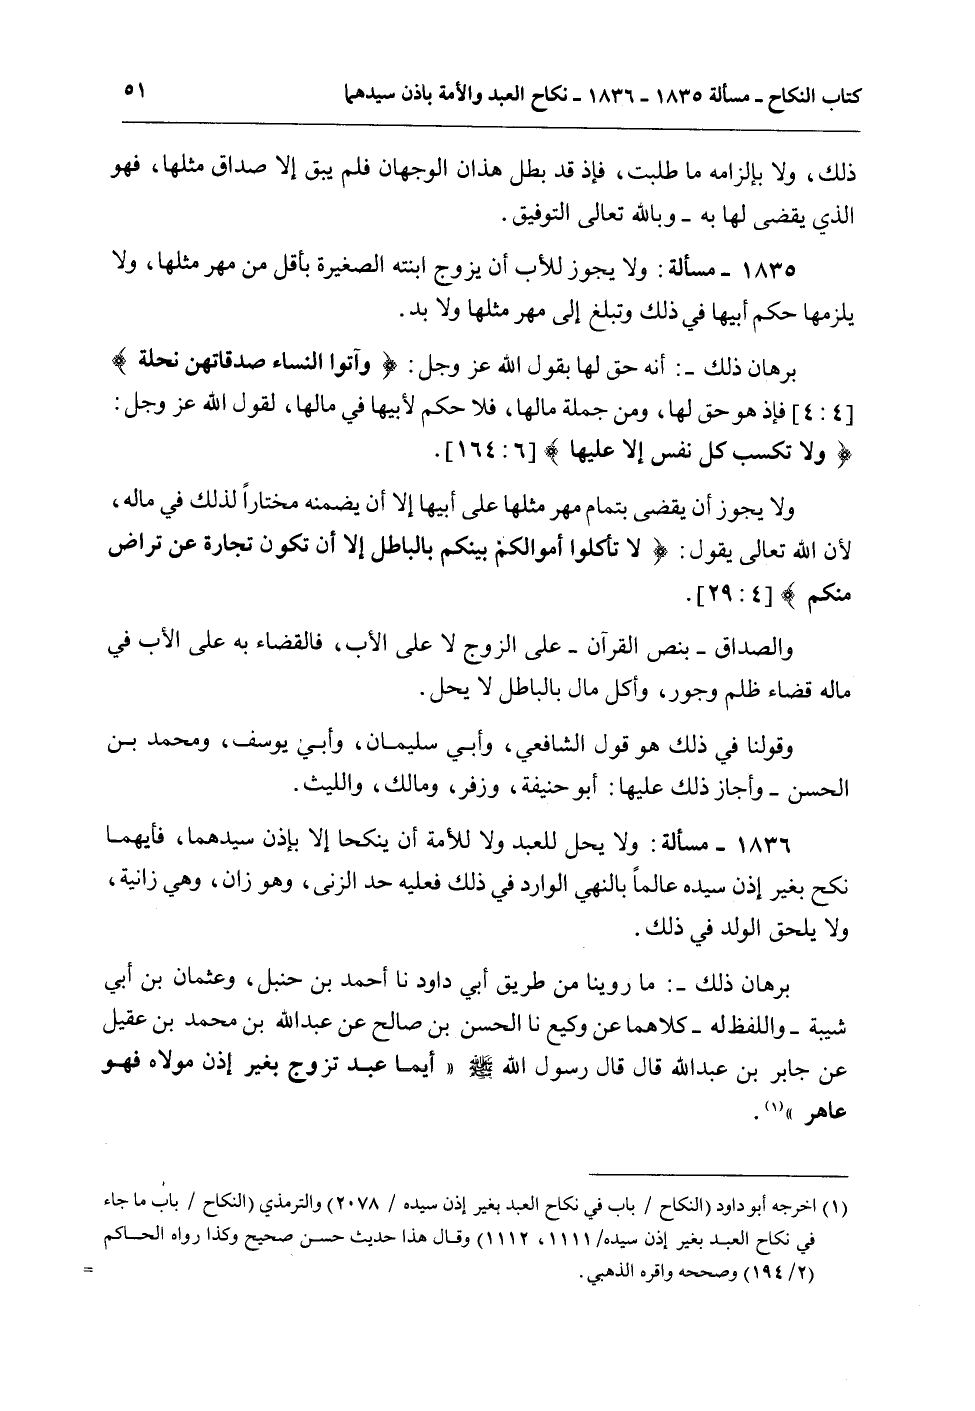 كتاب النكاح ـ مسألة ١٨٣٥ - ١٨٣٦ - نكاح العبد والأمة بإذن سيدهما ٥١
ذلك، ولا بإلزامه ما طلبت، فإذ قد بطل هذان الوجهان فلم يبق إلا صداق مثلها، فهو
الذي يقضى لها به ـ وبالله تعالى التوفيق.
١٨٣٥ ـ مسألة: ولا يجوز للأب أن يزوج ابنته الصغيرة بأقل من مهر مثلها، ولا
يلزمها حكم أبيها في ذلك وتبلغ إلى مهر مثلها ولا بد.
برهان ذلك ـ: أنه حق لها بقول الله عز وجل: ﴿ وآتوا النساء صدقاتهن نحلة ﴾
[٤ : ٤] فإذ هو حق لها، ومن جملة مالها، فلا حكم لأبيها في مالها، لقول الله عز وجل:
﴿ ولا تكسب كل نفس إلا عليها ﴾ [٦ : ١٦٤].
ولا يجوز أن يقضى بتمام مهر مثلها على أبيها إلا أن يضمنه مختاراً لذلك في ماله،
لأن الله تعالى يقول: ﴿ لا تأكلوا أموالكم بينكم بالباطل إلا أن تكون تجارة عن تراض
منكم ﴾ [٤ : ٢٩].
والصداق ـ بنص القرآن ـ على الزوج لا على الأب، فالقضاء به على الأب في
ماله قضاء ظلم وجور، وأكل مال بالباطل لا يحل.
وقولنا في ذلك هو قول الشافعي، وأبي سليمان، وأبي يوسف، ومحمد بن
الحسن ـ وأجاز ذلك عليها: أبو حنيفة، وزفر، ومالك، والليث.
١٨٣٦ ـ مسألة: ولا يحل للعبد ولا للأمة أن ينكحا إلا بإذن سيدهما، فأيهما
نكح بغير إذن سيده عالماً بالنهي الوارد في ذلك فعليه حد الزنى، وهو زان، وهي زانية،
ولا يلحق الولد في ذلك.
برهان ذلك ـ: ما روينا من طريق أبي داود نا أحمد بن حنبل، وعثمان بن أبي
شيبة ـ واللفظ له ـ كلاهما عن وكيع نا الحسن بن صالح عن عبدالله بن محمد بن عقيل
عن جابر بن عبدالله قال قال رسول الله ﷺ « أيما عبد تزوج بغير إذن مولاه فهو
عاهر »(١).
(١) اخرجه أبو داود (النكاح / باب في نكاح العبد بغير إذن سيده / ٢٠٧٨) والترمذي (النكاح / باب ما جاء
في نكاح العبد بغير إذن سيده/ ١١١١، ١١١٢) وقال هذا حديث حسن صحيح وكذا رواه الحاكم
(٢/ ١٩٤) وصححه واقره الذهبي. =